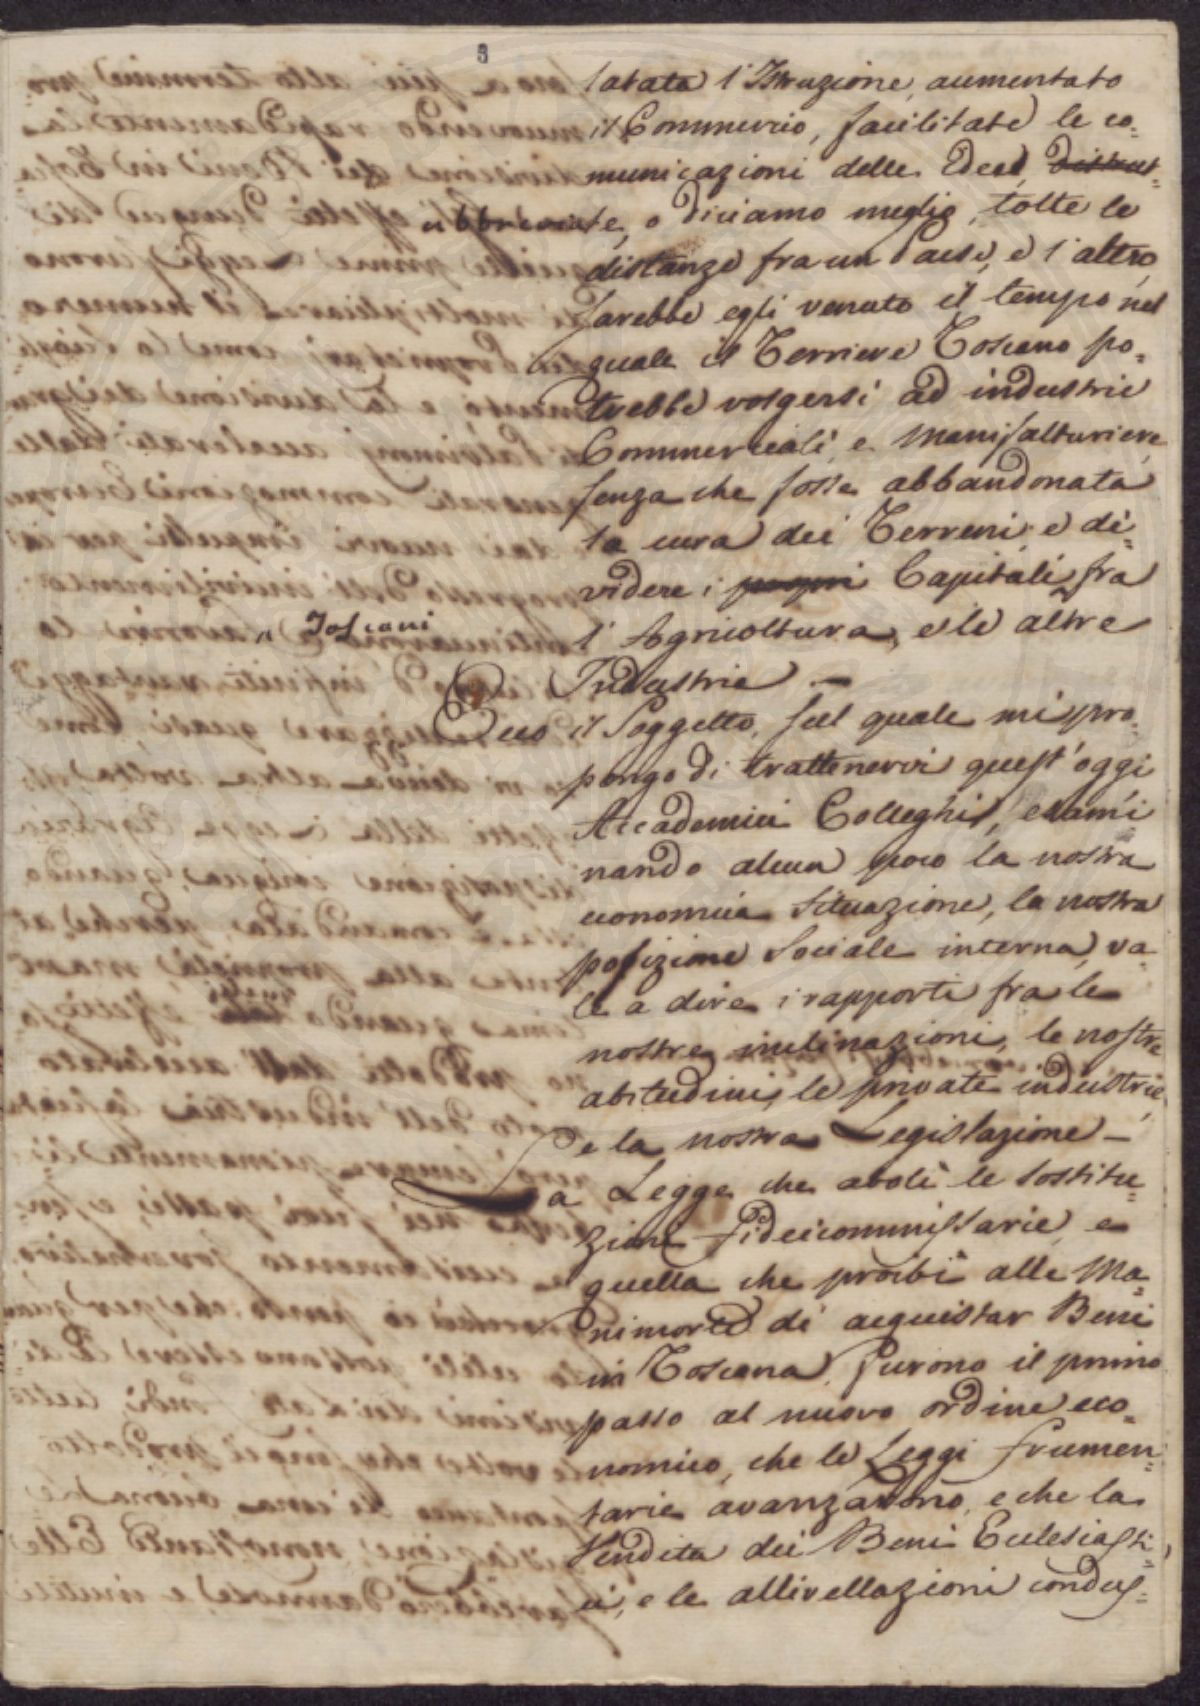 3
latata l'Istruzione, aumentato
il Commercio, facilitate le co=
municazioni delle Idee,
abbreviate, o diciamo meglio, tolte le
distanze fra un Paese, e l'altro,
sarebbe egli venuto il tempo nel
quale il Terriere Toscano po=
trebbe volgersi ad industrie
Commerciali, e Manifatturiere
senza che fosse abbandonata
la cura dei Terreni, e di=
videre i Capitali fra
Toscani
l'Agricoltura, e le altre
Industrie —
Ecco il Soggetto, sul quale mi pro=
pongo di trattenervi quest'oggi
Accademici Colleghi, esami
nando alcun poco la nostra
economica Situazione, la nostra
posizione Sociale interna, va=
le a dire i rapporti fra le
nostre inclinazioni, le nostre
abitudini, le private industrie,
e la nostra Legislazione —
La Legge che abolì le sostitu=
zioni Fideicommissarie, e
quella che proibì alle Ma=
nimorte di acquistar Beni
in Toscana, furono il primo
passo al nuovo ordine eco=
nomico, che le Leggi frumen=
tarie avanzarono, e che la
Vendita dei Beni Ecclesiasti=
ci, e le allivellazioni condus=